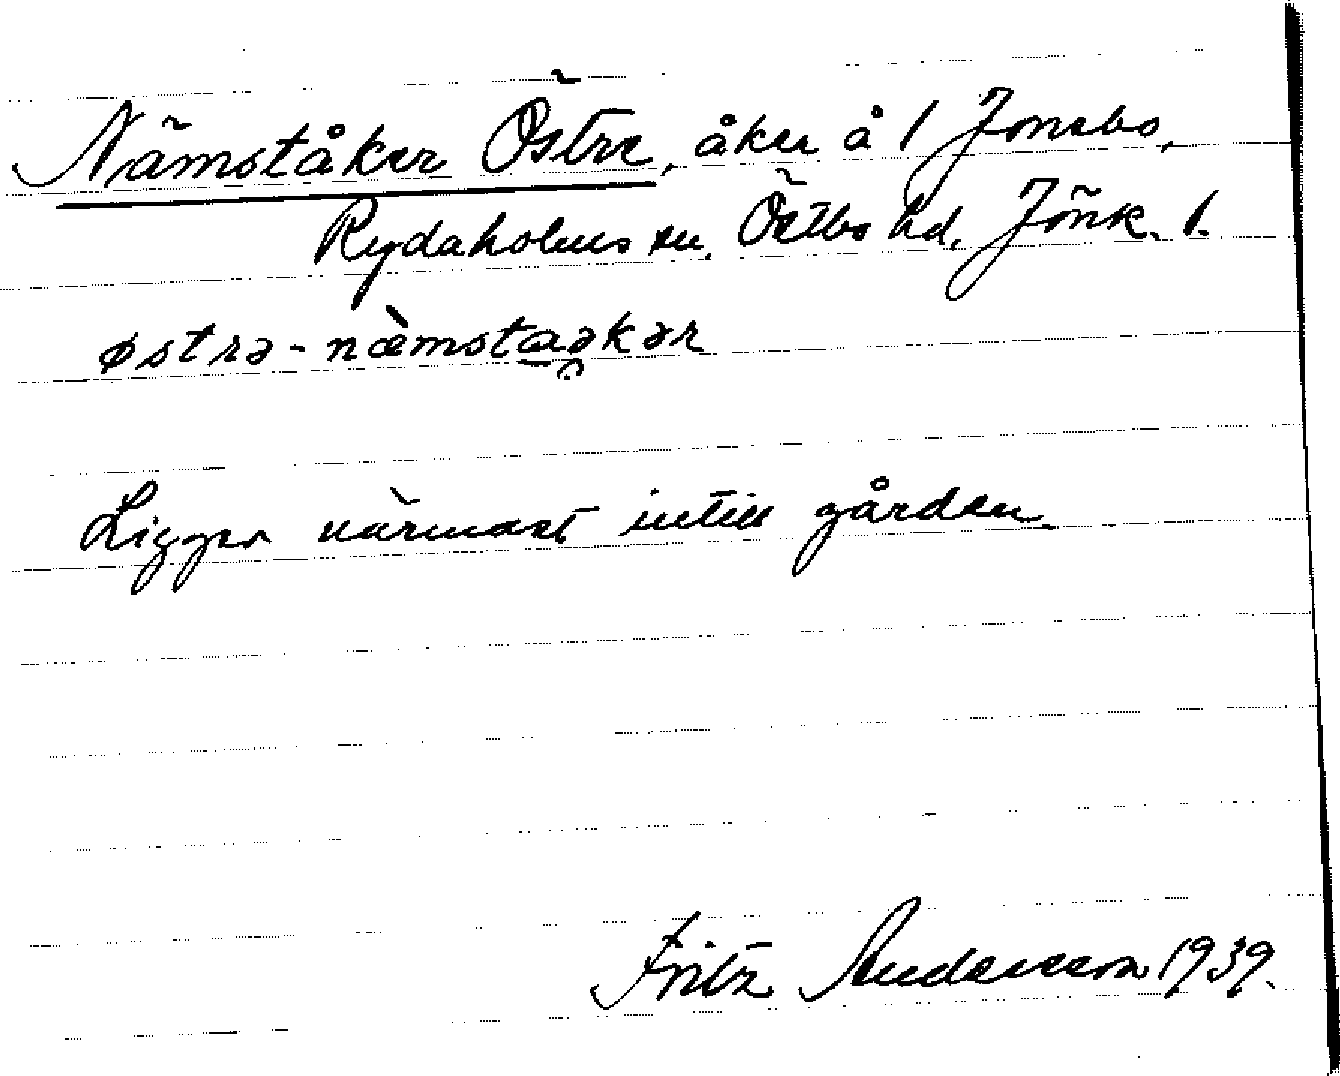 Nämståker Östre, åker å 1 Jonsbo,
Rydaholms sn, Östbo hd, Jönk. l.
østrə-næ̀mstaəkər
Ligger närmast intill gården.
Fritz Andersson 1939.